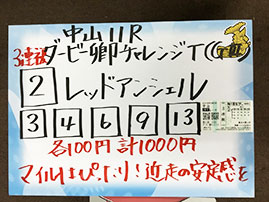 中山11R
3連複 ダービー卿チャレンジT(GIII)
2 レッドアンシェル
3 4 6 9 13
各100円 計1000円
マイルはぴったり!近走の安定感を